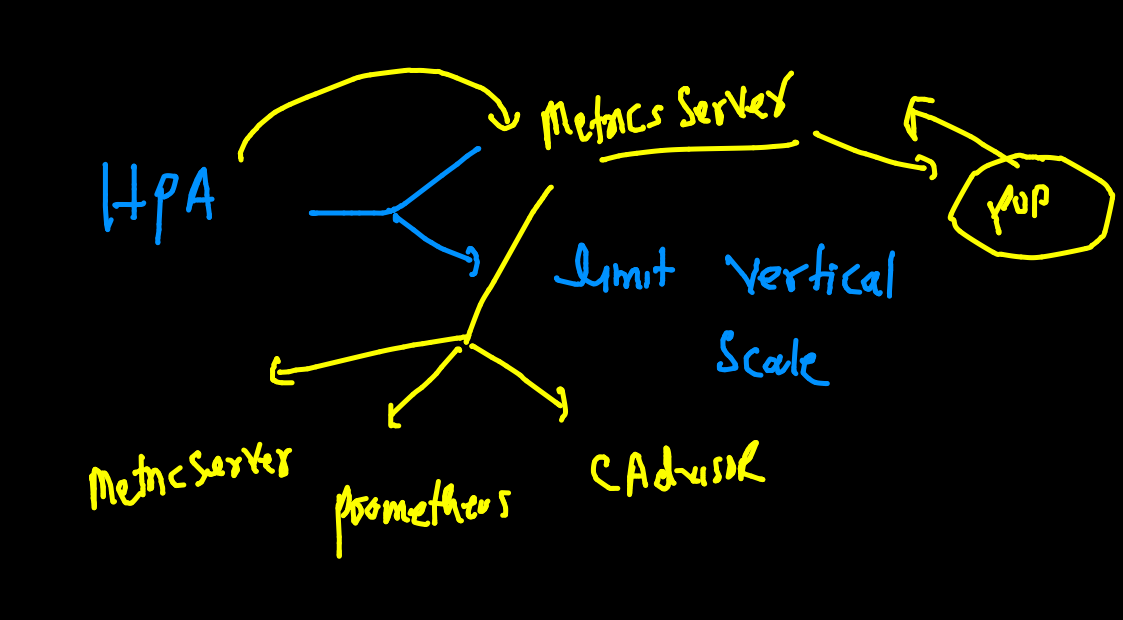 Metrics Server
HPA
POP
limit vertical
Scale
Metric Server
Prometheus
CAdvisor